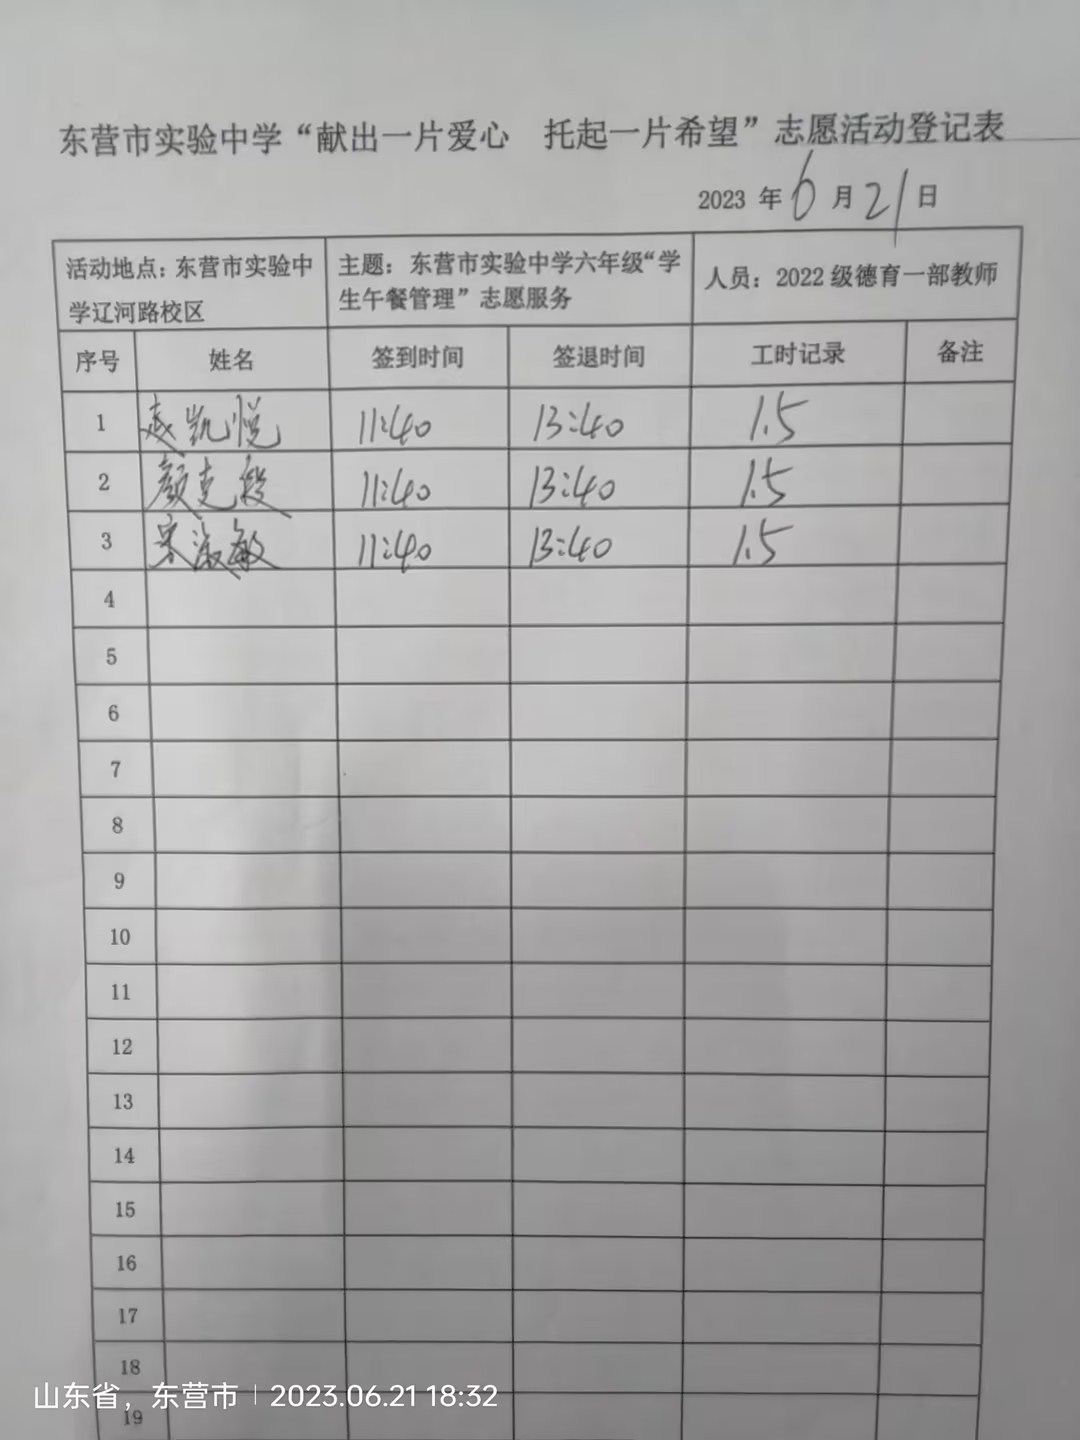 东营市实验中学“献出一片爱心 托起一片希望”志愿活动登记表
2023 年 6 月 21 日
活动地点：东营市实验中
学辽河路校区
主题：东营市实验中学六年级“学
生午餐管理”志愿服务
人员：2022 级德育一部教师
序号 姓名 签到时间 签退时间 工时记录 备注
1 凯悦 11:40 13:40 1.5
2 颜克 11:40 13:40 1.5
3 宋淑敏 11:40 13:40 1.5
4
5
6
7
8
9
10
11
12
13
14
15
16
17
18
19
山东省，东营市 | 2023.06.21 18:32